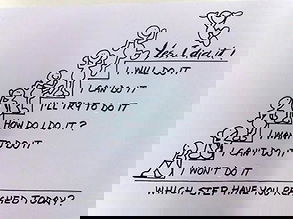 Yes, I did it!
I WILL DO IT
I CAN DO IT
I'LL TRY TO DO IT
HOW DO I DO IT?
I WANT
I CAN'T DO IT
I WON'T DO IT
WHICH STEP HAVE YOU